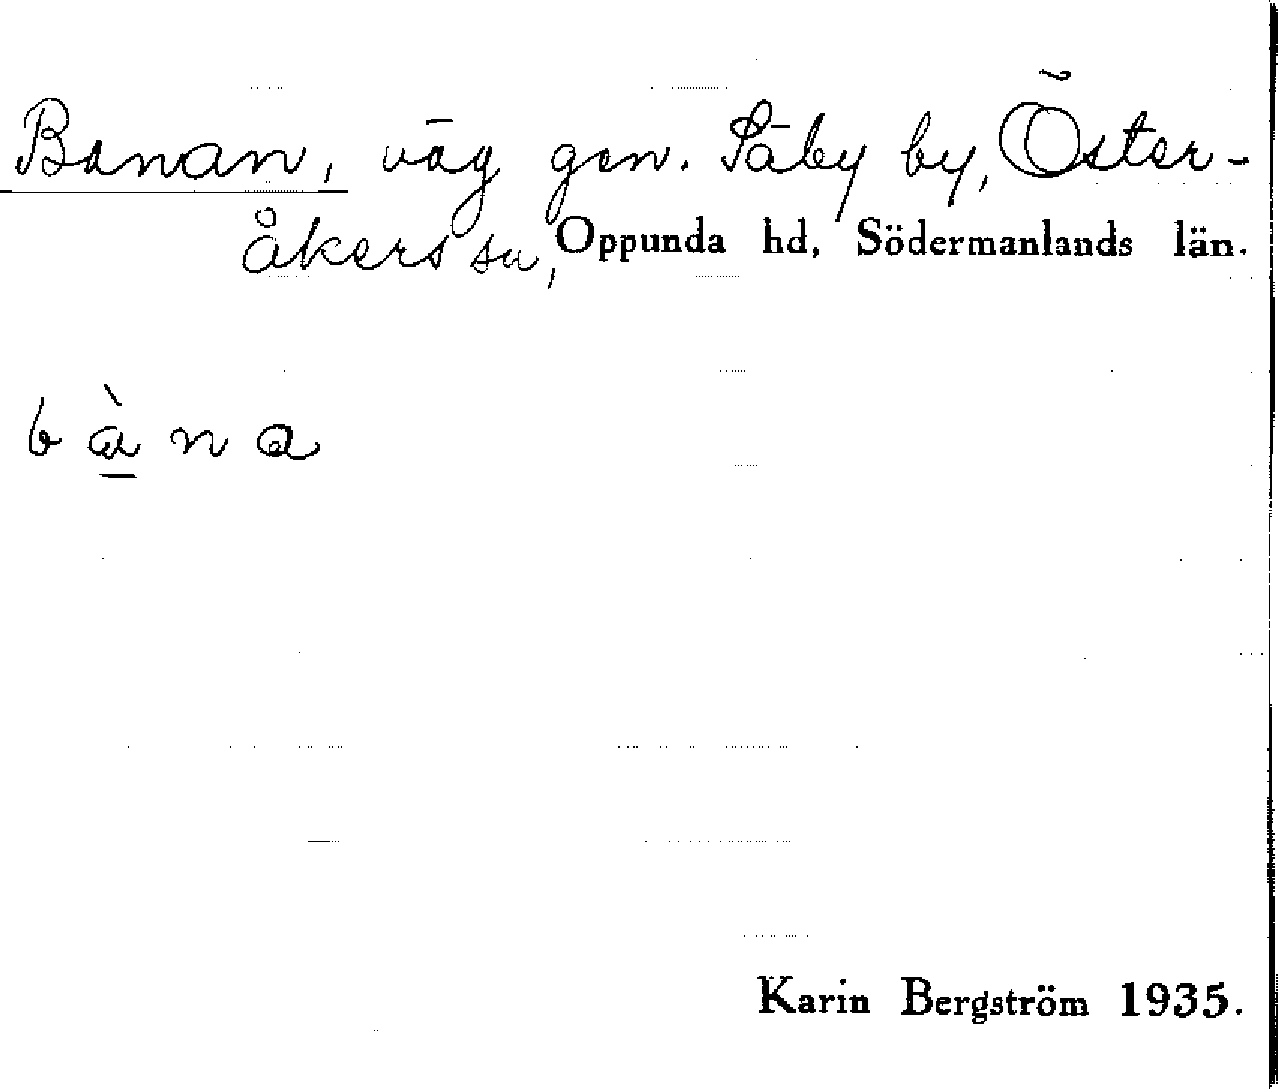 Banan, väg gen. Säby by, Öster-
åkers sn, Oppunda hd, Södermanlands län.
b à n a
Karin Bergström 1935.